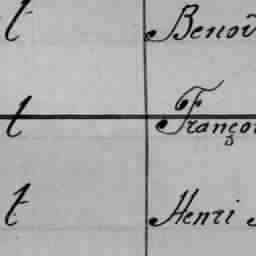 t Benoi
t Françoi
t Henri